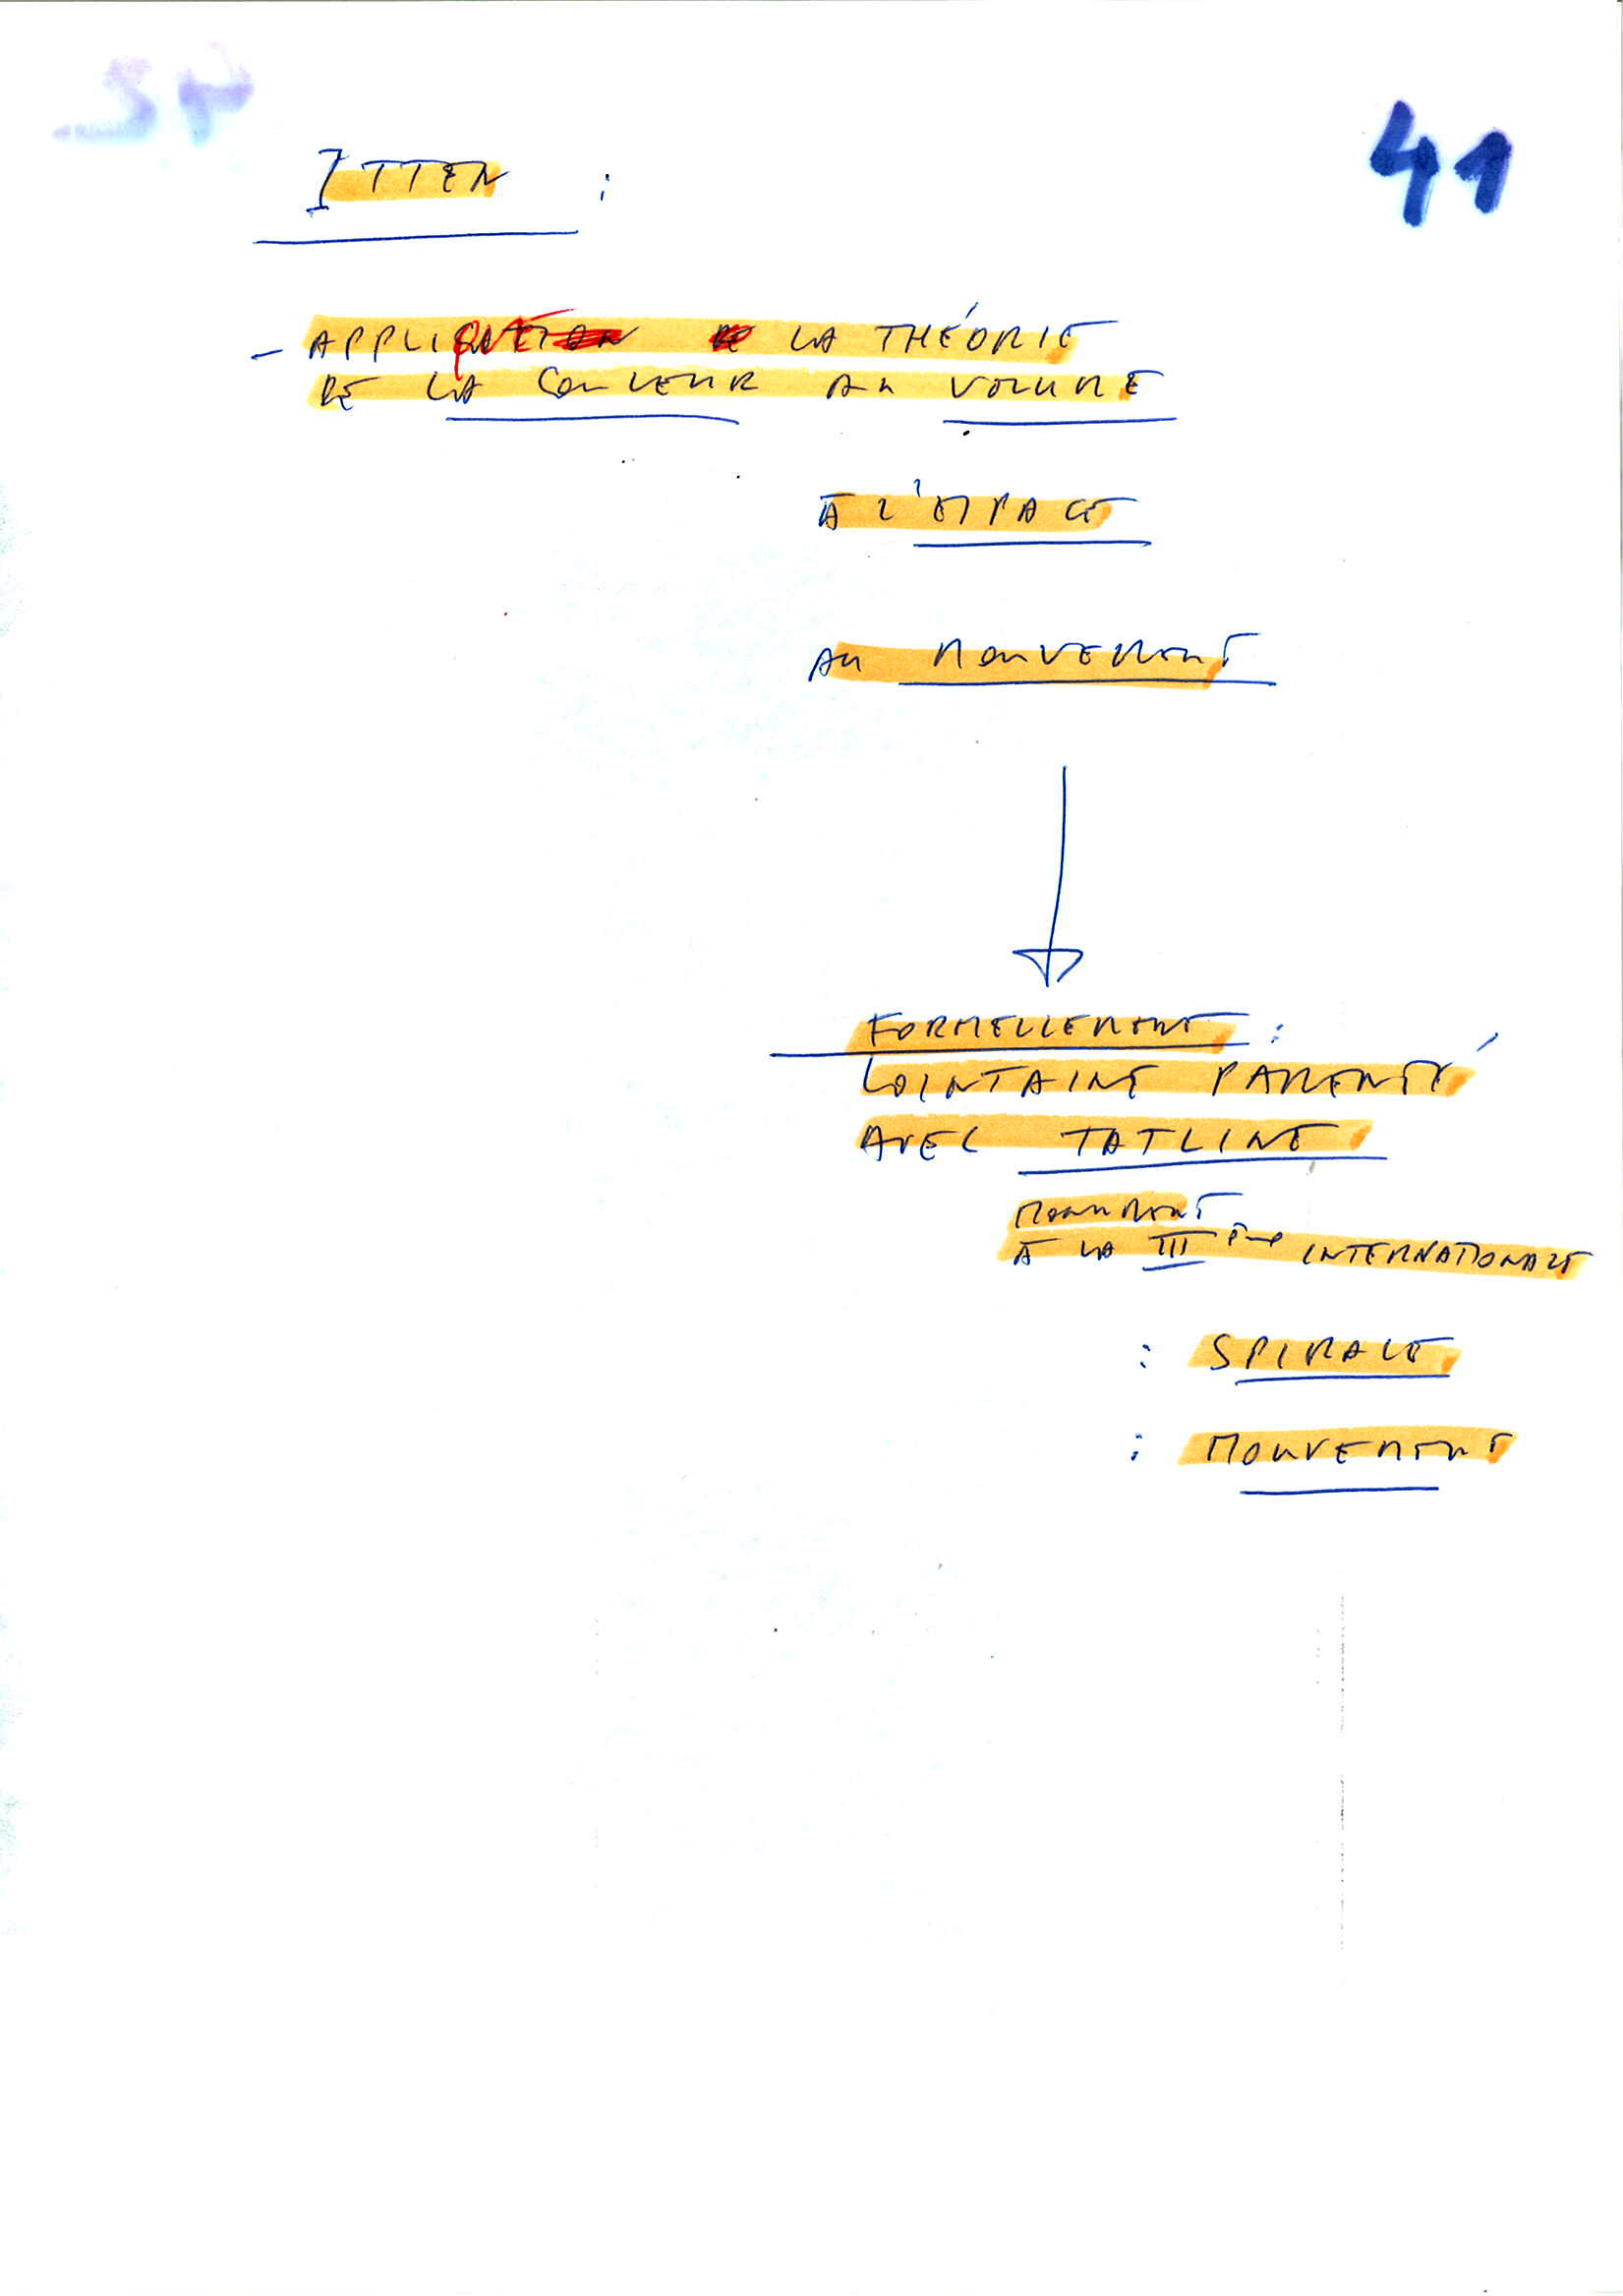 41
ITTEN :
- APPLIQUE LA THÉORIE
DE LA COULEUR AU VOLUME
À L'ESPACE
AU MOUVEMENT
FORMELLEMENT :
LOINTAINE PARENTÉ
AVEC TATLINE
MONUMENT
À LA III ème INTERNATIONALE
: SPIRALE
: MOUVEMENT